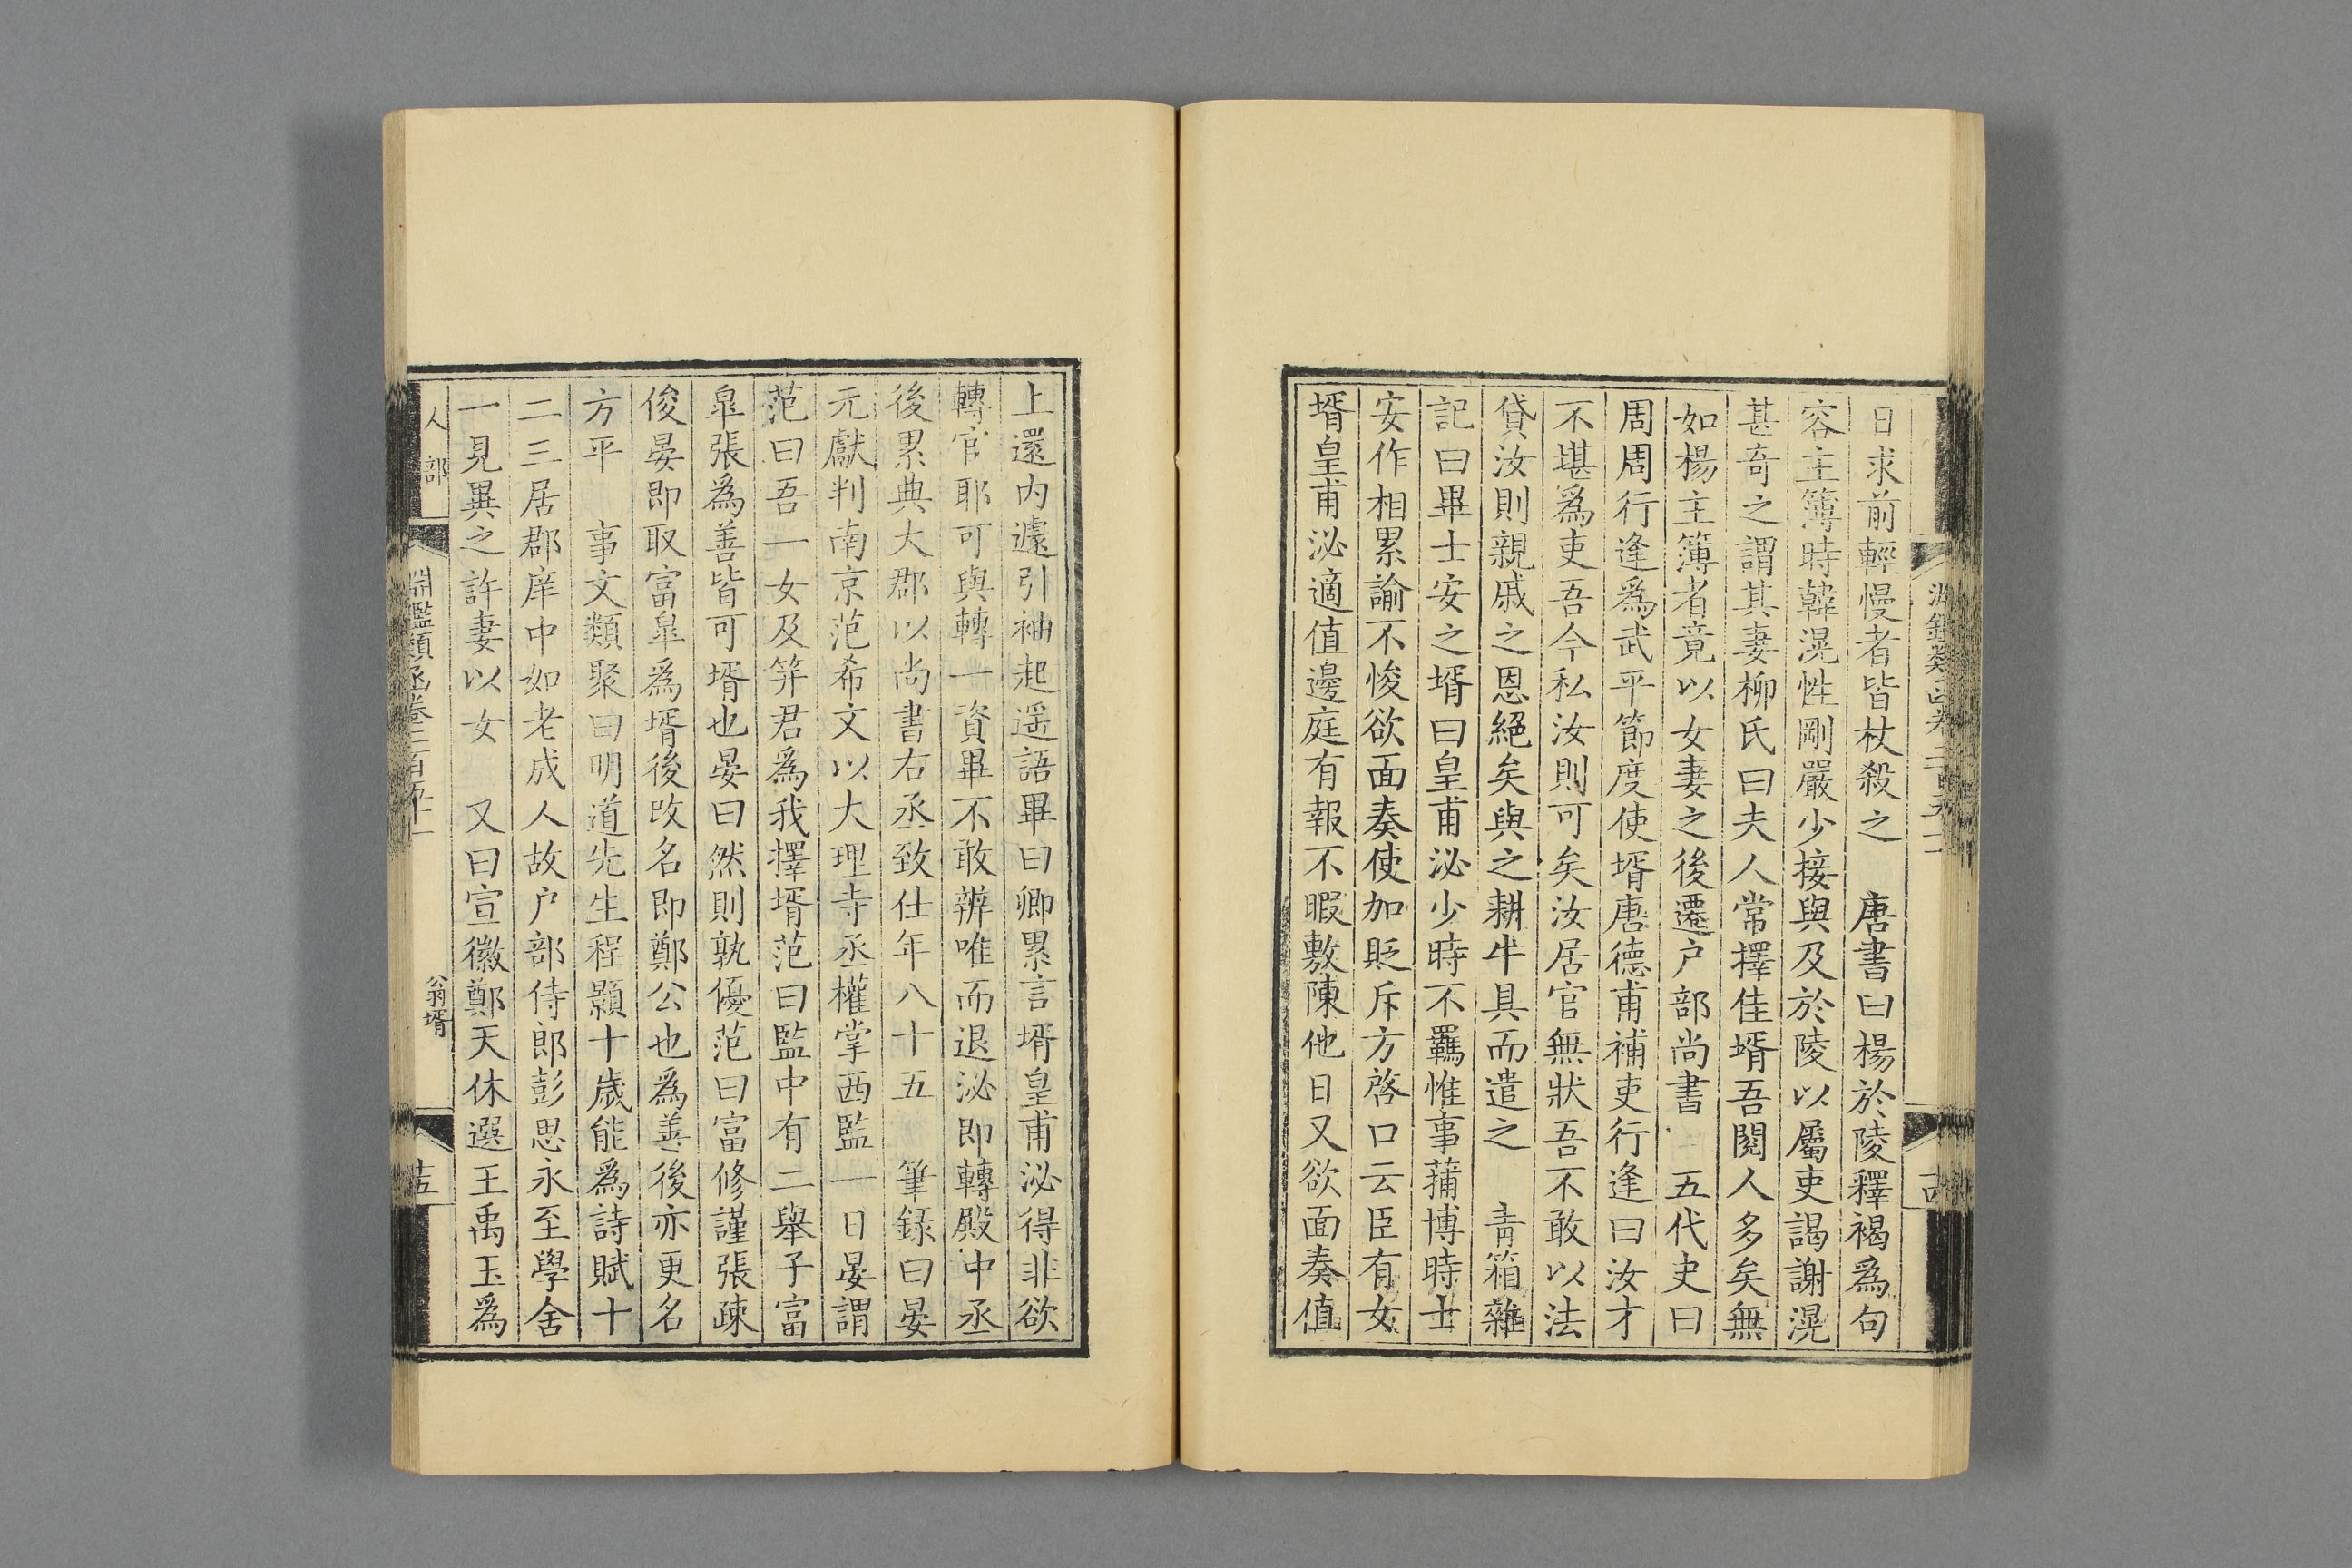 日求前輕慢者皆杖殺之　唐書曰楊於陵釋褐爲句
容主簿時韓滉性剛嚴少接與及於陵以屬吏謁謝滉
甚奇之謂其妻柳氏曰夫人常擇佳壻吾閱人多矣無
如楊主簿者竟以女妻之後遷户部尚書　五代史曰
周周行逢爲武平節度使壻唐德甫補吏行逢曰汝才
不堪爲吏吾今私汝則可矣汝居官無狀吾不敢以法
貸汝則親戚之恩絕矣與之耕牛具而遣之　青箱雜
記曰畢士安之壻曰皇甫泌少時不羈惟事蒱博時士
安作相累諭不悛欲面奏使加貶斥方啓口云臣有女
壻皇甫泌適值邊庭有報不暇敷陳他日又欲面奏值
上還内遽引袖起遥語畢曰卿累言壻皇甫泌得非欲
轉官耶可與轉一資畢不敢辨唯而退泌即轉殿中丞
後累典大郡以尚書右丞致仕年八十五　筆録曰晏
元獻判南京范希文以大理寺丞權掌西監一日晏謂
范曰吾一女及笄君爲我擇壻范曰監中有二舉子富
臯張爲善皆可壻也晏曰然則孰優范曰富修謹張疎
俊晏即取富臯爲壻後改名即鄭公也爲善後亦更名
方平　事文類聚曰明道先生程顥十歲能爲詩賦十
二三居郡庠中如老成人故户部侍郎彭思永至學舍
一見異之許妻以女　又曰宣徽鄭天休選王禹玉爲
人部
淵鑑類函卷二百四十一
翁壻
十五